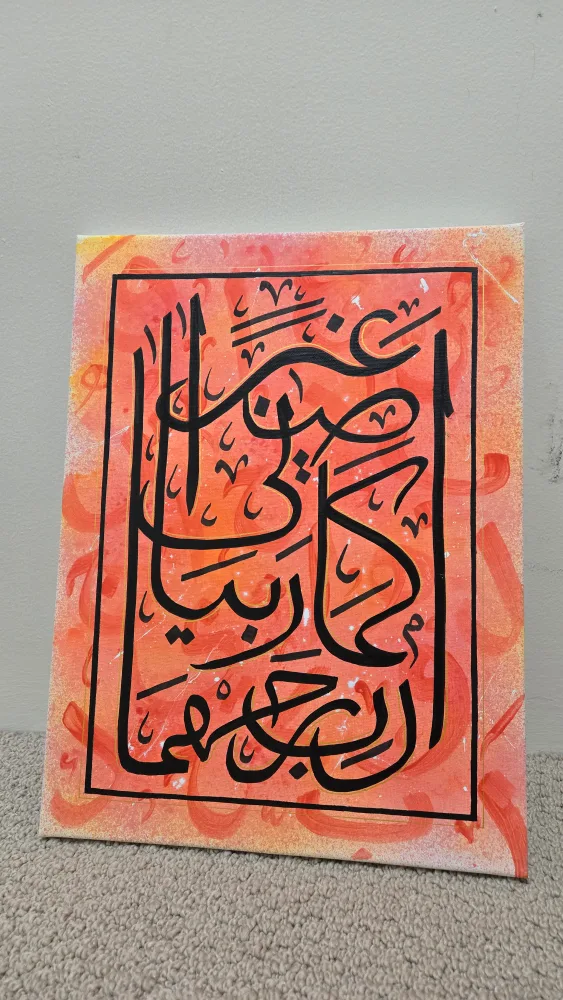 رب ارحمهما
كما ربياني
صغيرا